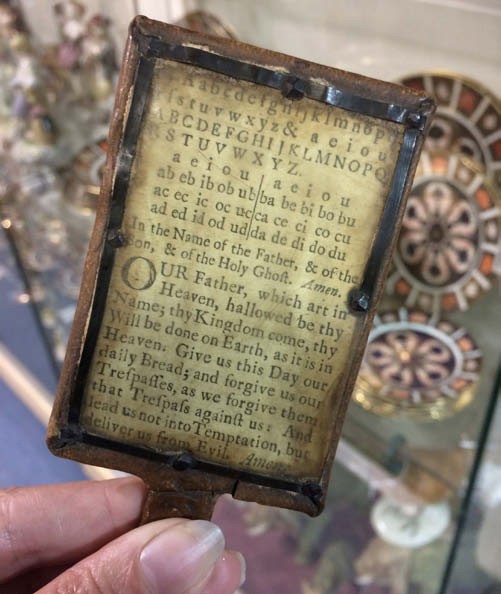 Aabcdefghijklmnopq
rſstuvwxyz& a e i o u
ABCDEFGHIJKLMNOPQ
RSTUVWXYZ.
a e i o u | a e i o u
ab eb ib ob ub | ba be bi bo bu
ac ec ic oc uc | ca ce ci co cu
ad ed id od ud | da de di do du
In the Name of the Father, & of the
Son, & of the Holy Ghoſt. Amen.
OUR Father, which art in
Heaven, hallowed be thy
Name; thy Kingdom come, thy
Will be done on Earth, as it is in
Heaven. Give us this Day our
daily Bread; and forgive us our
Treſpaſſes, as we forgive them
that Treſpaſs againſt us: And
lead us not into Temptation, but
deliver us from Evil. Amen.